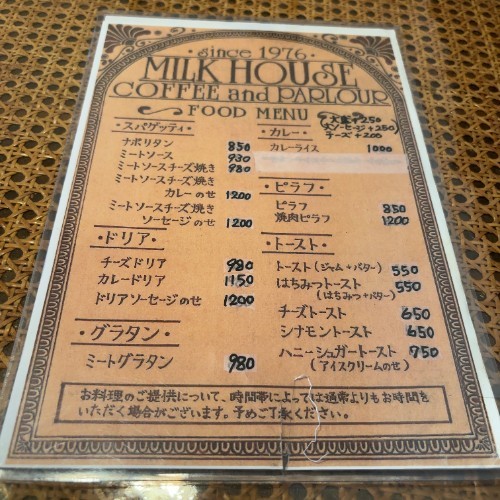 ・since 1976・
MILK HOUSE
COFFEE and PARLOUR
FOOD MENU
・スパゲッティ・
ナポリタン 850
ミートソース 930
ミートソースチーズ焼き 980
ミートソースチーズ焼き
カレーのせ 1200
ミートソースチーズ焼き
ソーセージのせ 1200
・ドリア・
チーズドリア 980
カレードリア 1150
ドリアソーセージのせ 1200
・グラタン・
ミートグラタン 980
・カレー・
大盛+250
大ソーセージ+250
チーズ+200
カレーライス 1000
・ピラフ・
ピラフ 850
焼肉ピラフ 1200
・トースト・
トースト(ジャム+バター) 550
はちみつトースト 550
(はちみつ+バター)
チーズトースト 650
シナモントースト 650
ハニーシュガートースト 750
(アイスクリームのせ)
お料理のご提供について、時間帯によっては通常よりもお時間を
いただく場合がございます。予めご了承ください。